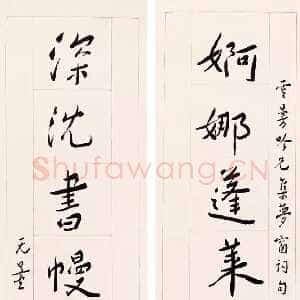 雲 吟兄集夢窗词句
婀娜蓬莱
深沈書幔
无量
Shufawang.CN